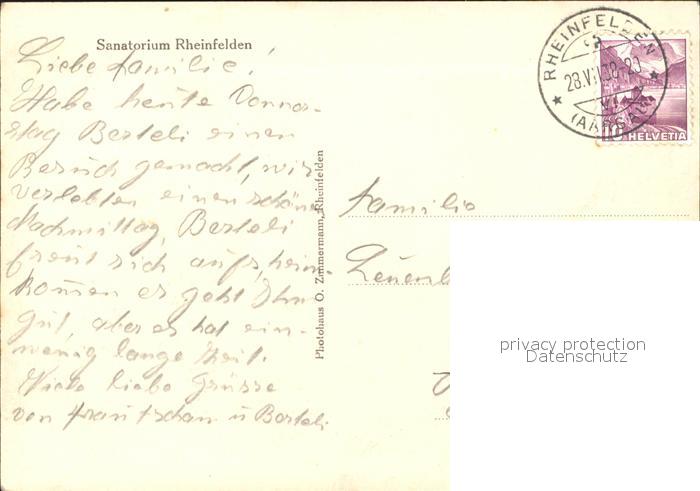 Sanatorium Rheinfelden
Liebe Familie!
Habe heute Donners-
tag Berteli einen
Besuch gemacht, wir
verlebten einen schönen
Nachmittag, Berteli
freut sich aufs, heim-
kommen es geht Ihm
gut, aber es hat ein-
wenig lange Zeit.
Viele liebe Grüsse
von Frau u Berteli
Photohaus O. Zimmermann, Rheinfelden
RHEINFELDEN
28.VII.38-20
(AARGAU)
10 HELVETIA
Familie
privacy protection
Datenschutz